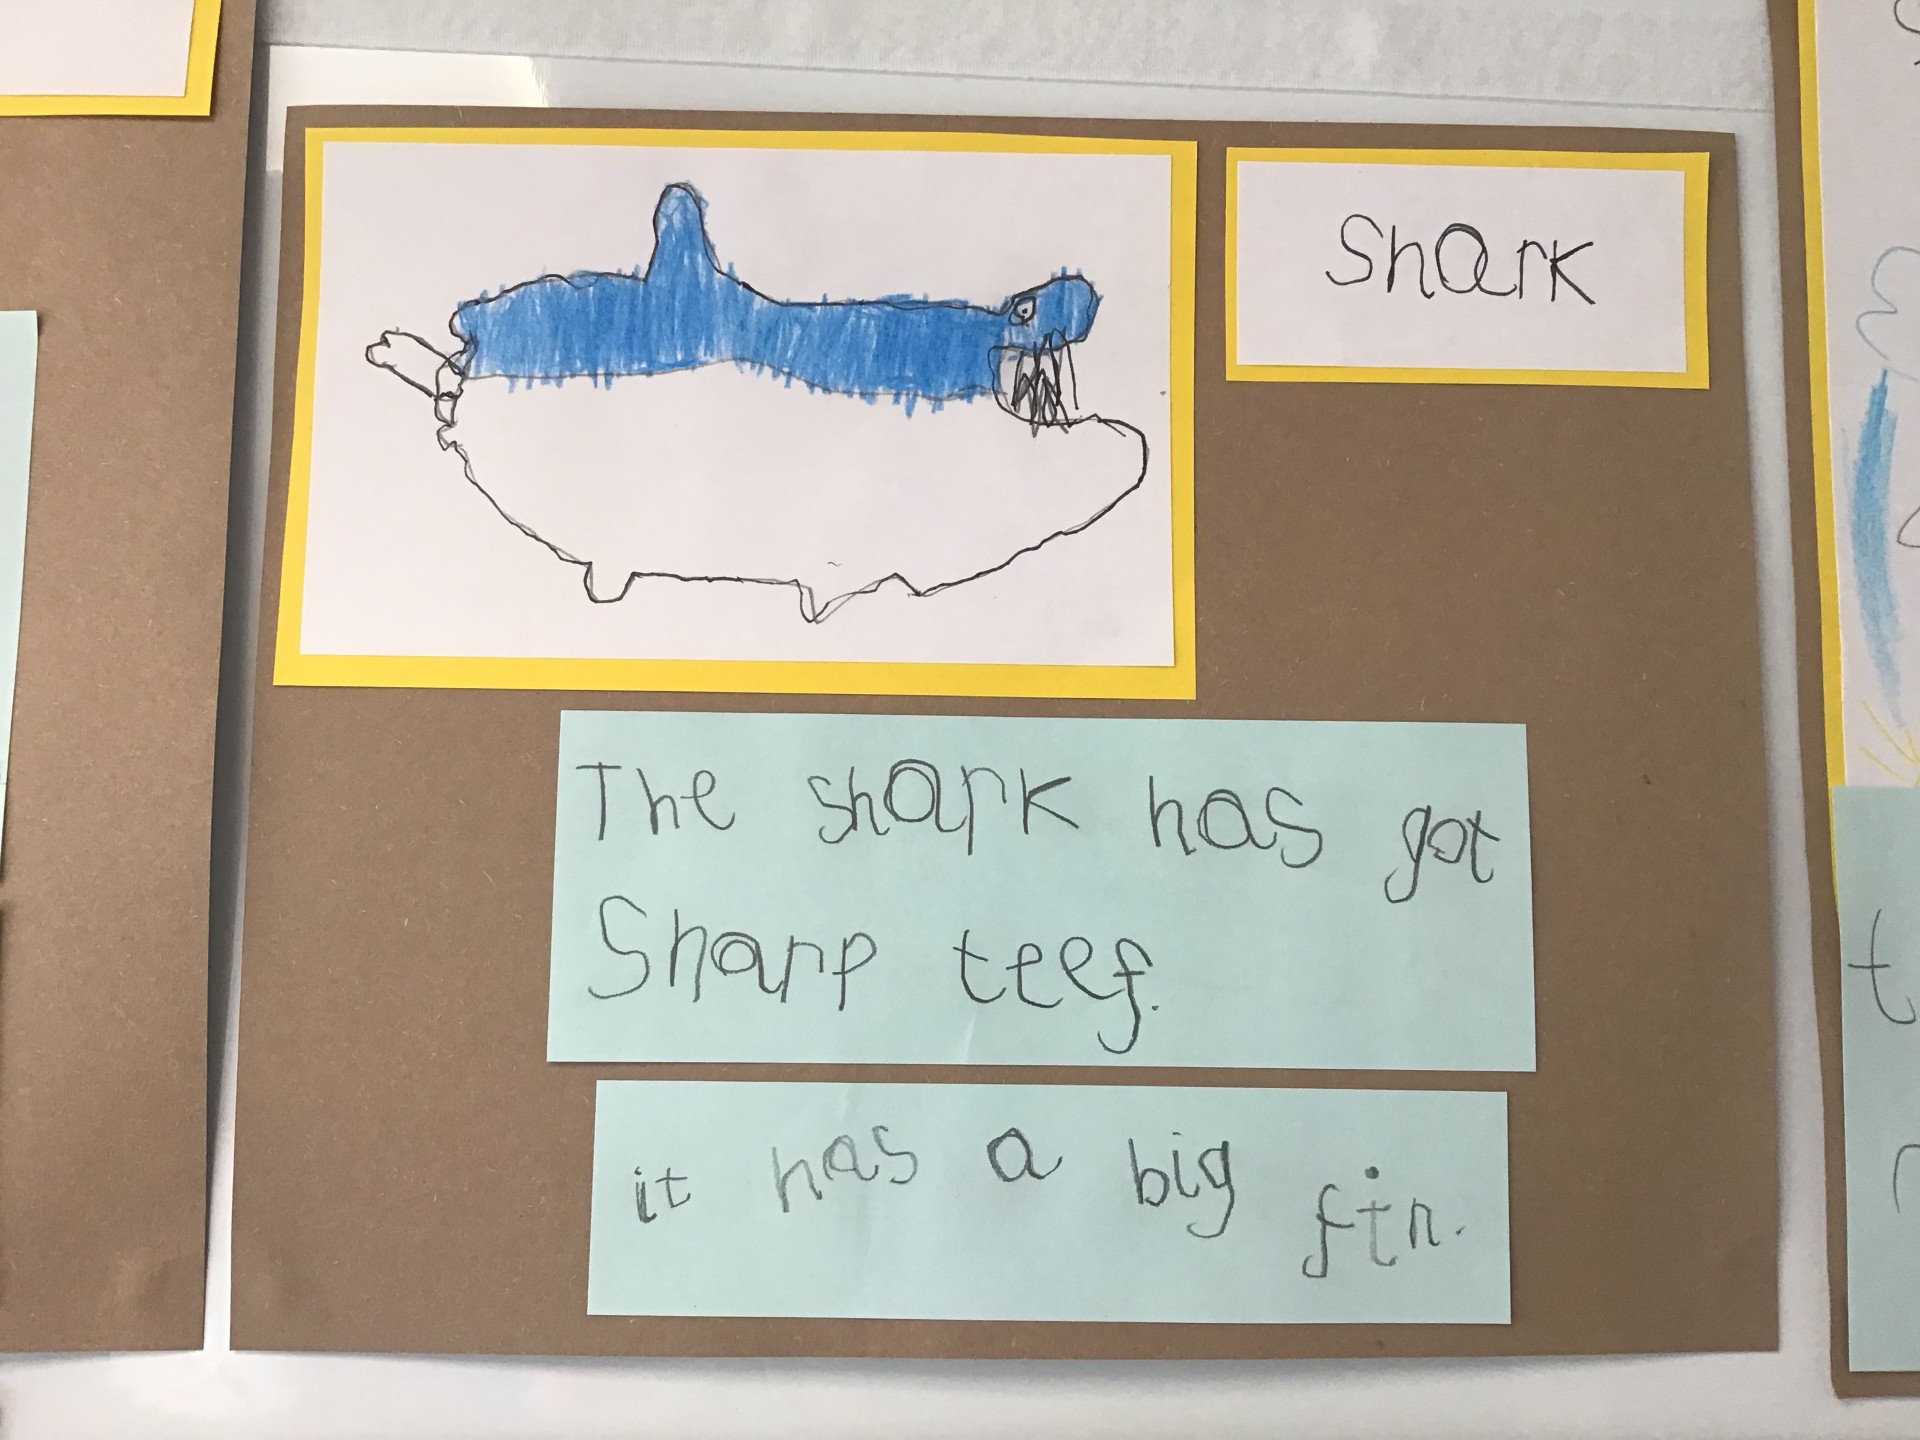 Shark
The shark has got
Sharp teef.
it has a big fin.
t